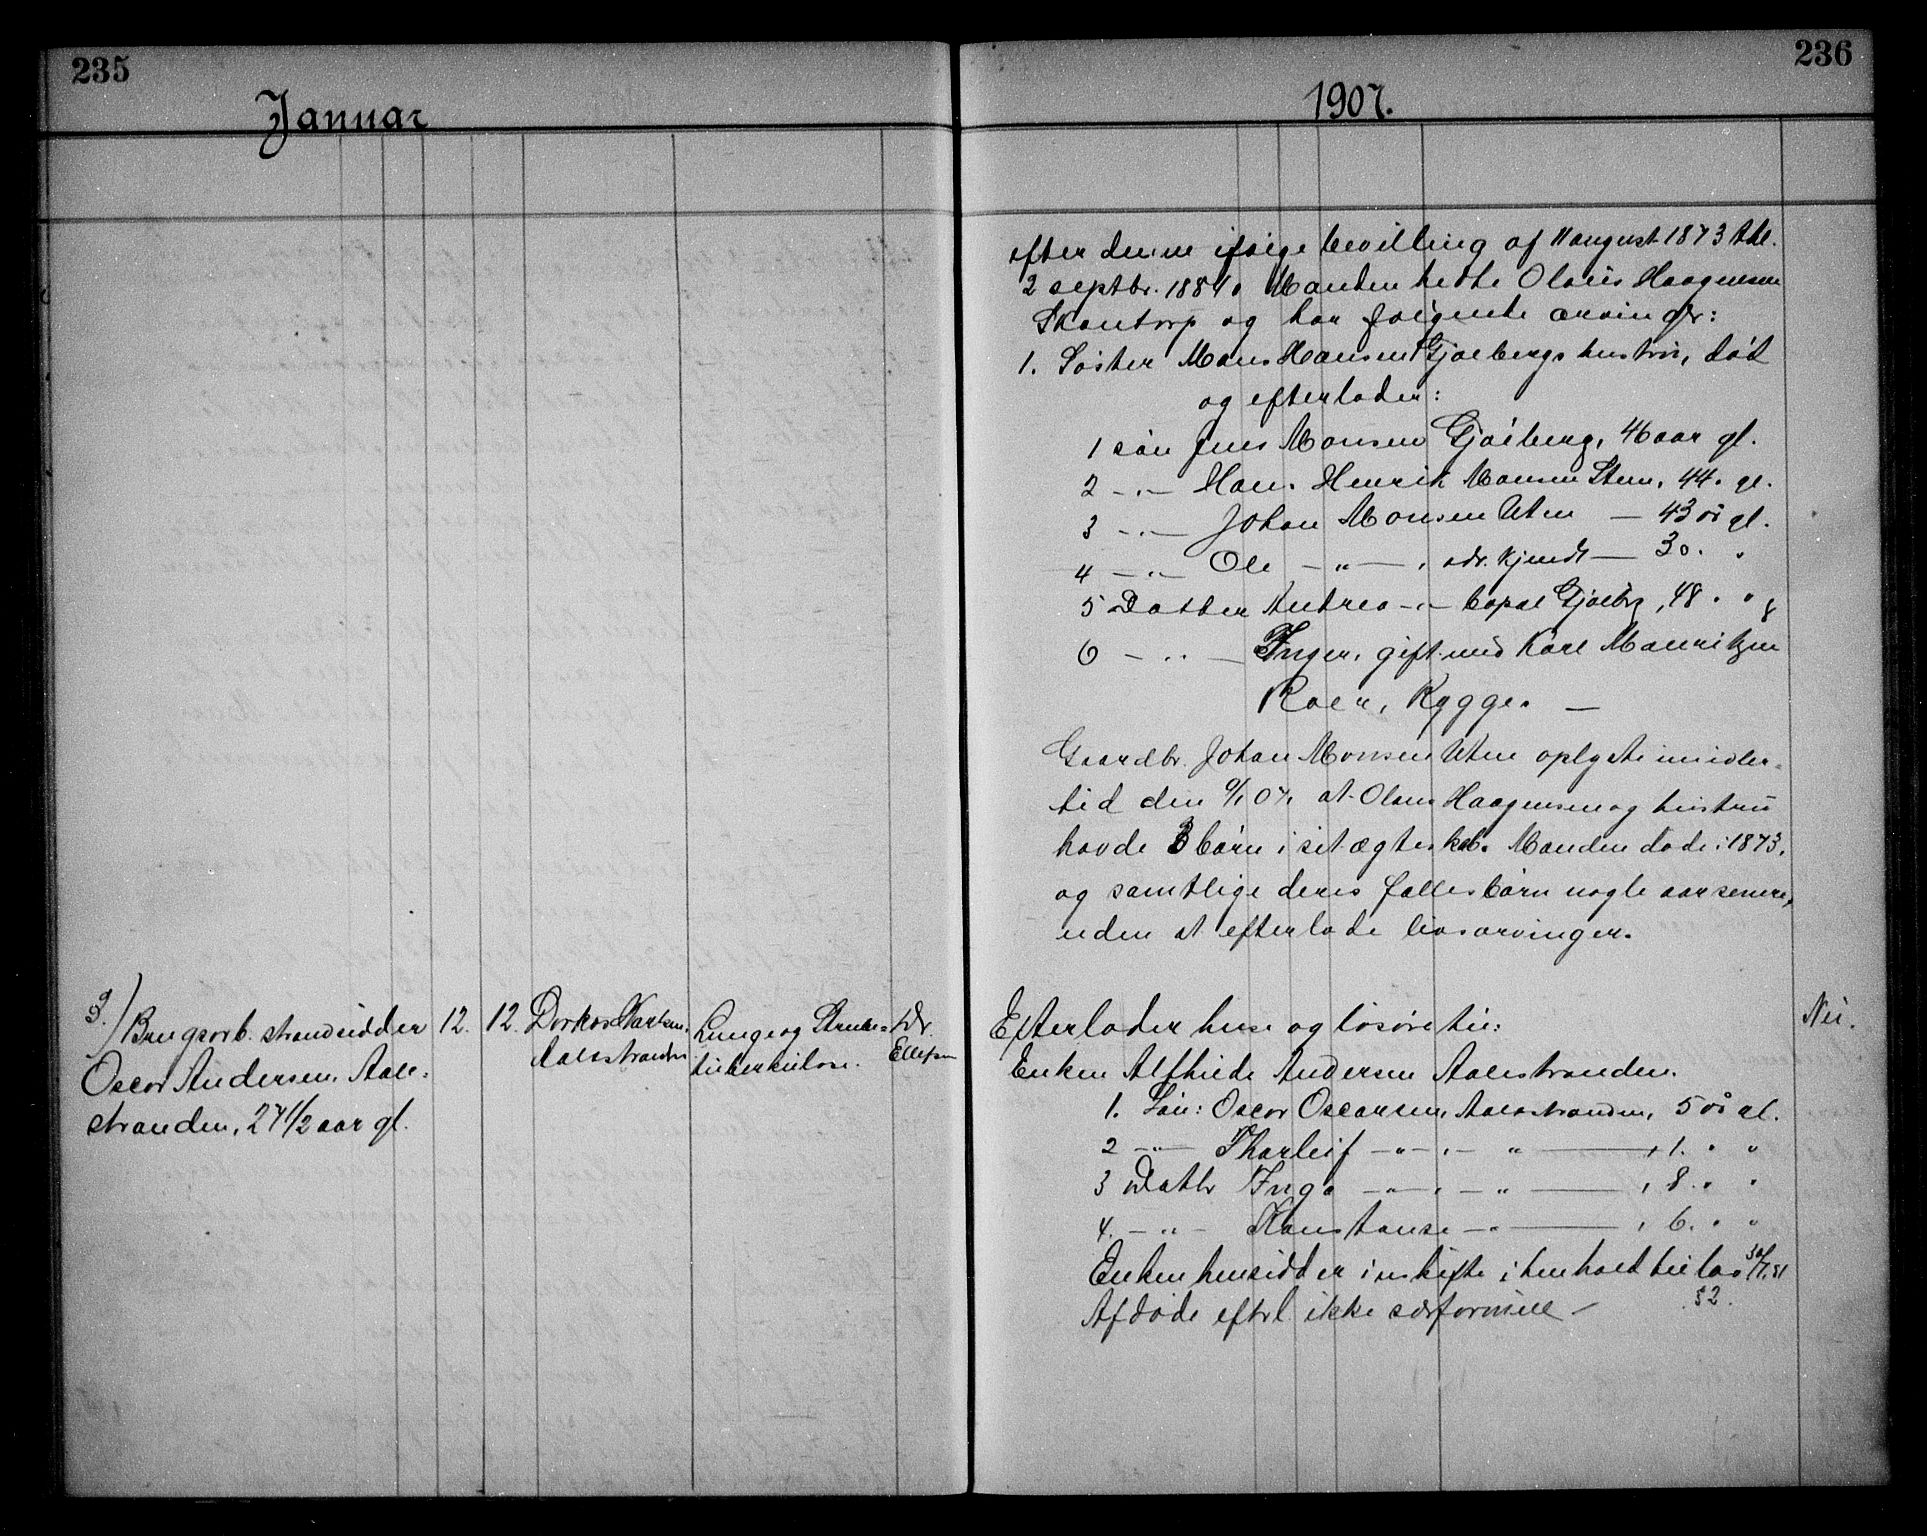 235
236
Januar
1907.
efter denne ifølge bevilling af 11 august 1873 thl.
2 septbr. 1881. Manden hedte Olaus Haagensen
Skontorp og har følgende arvinger:
1. Søster Mons Hansen Gjølbergs hustru, død
og efterlader:
1 søn Jens Monsen Gjølberg, 46 aar gl.
2 -"- Hans Henrik Monsen Sten, 44. gl.
3 -"- Johan Monsen Uten — 43 år gl.
4 -"- Ole -"- , adr. kjendt — 30. "
5 Datter Andrea -"- Gjølbg, 48 " "
6 -"- Inger, gift med Karl Mauritzen
Roer, Rygge. —
Gaardbr. Johan Monsen Uten oplyste imidler-
tid den 9/1 07, at Olaus Haagensen og hustru
havde 3 børn i sit ægteskab. Manden døde i 1873,
og samtlige deres fællesbørn nogle aar senere,
uden at efterlade livsarvinger.
3.) Brugsarb. strandsidder
Oscar Andersen, Aale-
stranden, 27 1/2 aar gl.
12. 12.
Dorkas
Aalestranden
Lunge og Strube-
tuberkulose.
Dr.
Ellefsen
Efterlader huse og løsøre til:
Enken Alfhilde Andersen Aalestranden.
1. Søn: Oscar Oscarsen, Aalestranden, 5 år gl.
2 -"- Thorleif -"- , - " — , 1. " "
3 Dattr Inga -"- , - " — , 8. " "
4. -"- Konstanse -"- — , 6. " "
Enken hensidder i uskifte i henhold til lov 30/7. 51
§ 2.
Afdøde efterl ikke særformue —
Nei.